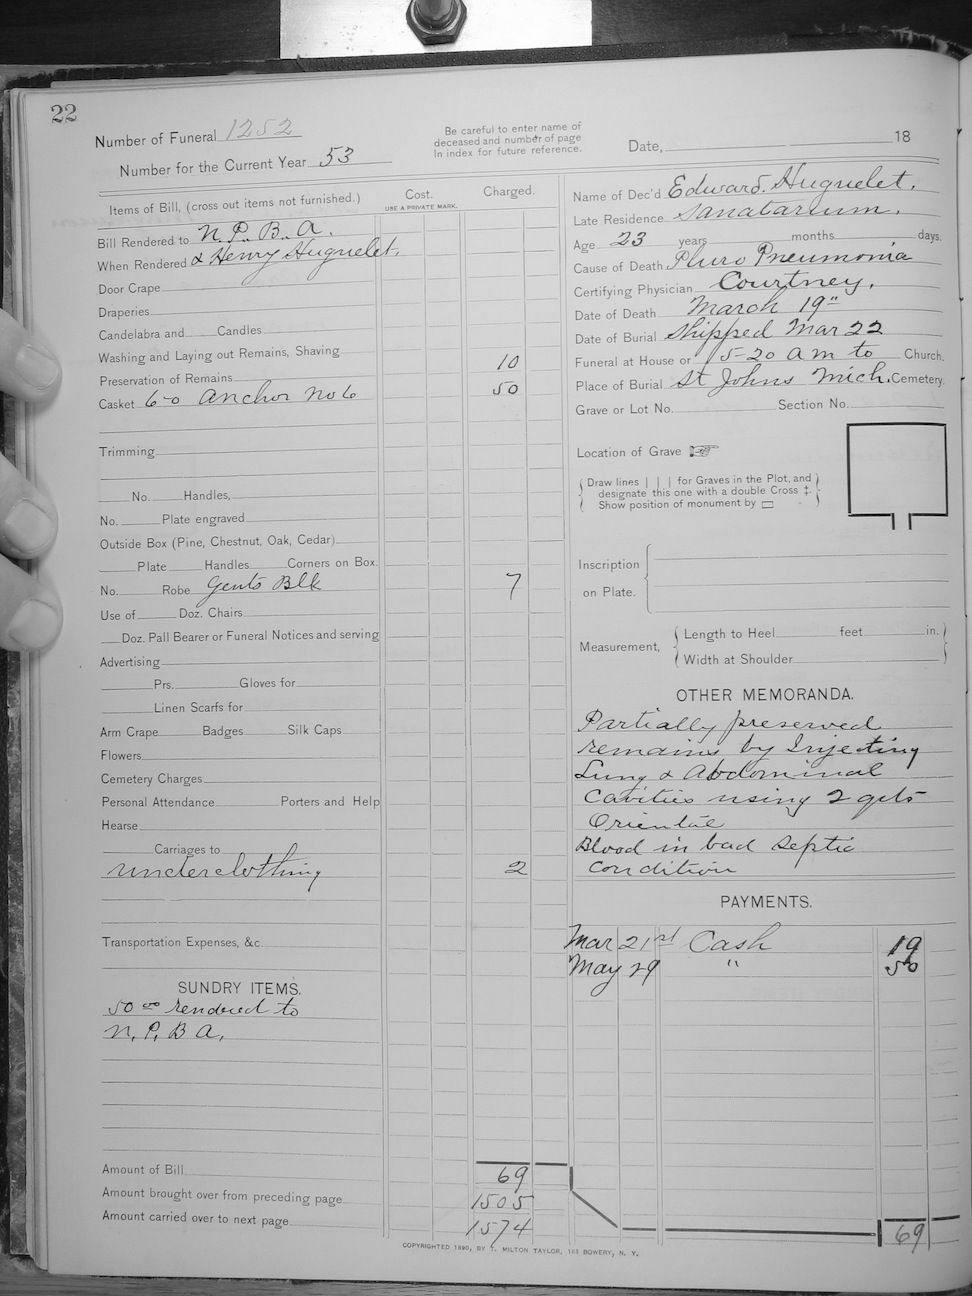 22
Number of Funeral 1252
Number for the Current Year 53
Be careful to enter name of
deceased and number of page
In index for future reference.
Date, 18
Items of Bill, (cross out items not furnished.)
Cost.
USE A PRIVATE MARK.
Charged.
Bill Rendered to N. P. B. A.
When Rendered & Henry Huguelet.
Door Crape
Draperies
Candelabra and Candles
Washing and Laying out Remains, Shaving
Preservation of Remains 10
Casket 6-0 Anchor No 6 50
Trimming
No. Handles,
No. Plate engraved
Outside Box (Pine, Chestnut, Oak, Cedar)
Plate Handles Corners on Box.
No. Robe Gents Blk 7
Use of Doz. Chairs
Doz. Pall Bearer or Funeral Notices and serving
Advertising
Prs. Gloves for
Linen Scarfs for
Arm Crape Badges Silk Caps
Flowers
Cemetery Charges
Personal Attendance Porters and Help
Hearse
Carriages to
underclothing 2
Transportation Expenses, &c
SUNDRY ITEMS.
50 00 rendered to
N. P. B A.
Amount of Bill 69
Amount brought over from preceding page 1505
Amount carried over to next page 1574
Name of Dec'd Edward. Huguelet.
Late Residence Sanatarium.
Age 23 years months days.
Cause of Death Pluro Pneumonia
Certifying Physician Courtney.
Date of Death March 19"
Date of Burial Shipped Mar 22
Funeral at House or 5-20 a m to Church.
Place of Burial St Johns Mich. Cemetery.
Grave or Lot No. Section No.
Location of Grave
Draw lines | | | for Graves in the Plot, and
designate this one with a double Cross ‡.
Show position of monument by ▭
Inscription
on Plate.
Measurement,
Length to Heel feet in.
Width at Shoulder
OTHER MEMORANDA.
Partially preserved
remains by Injecting
Lung & Abdominal
Cavities using 2 qts
Blood in bad Septic
Condition
PAYMENTS.
Mar 21st Cash 19
May 29 " 50
69
COPYRIGHTED 1890, BY T. MILTON TAYLOR, 163 BOWERY, N. Y.